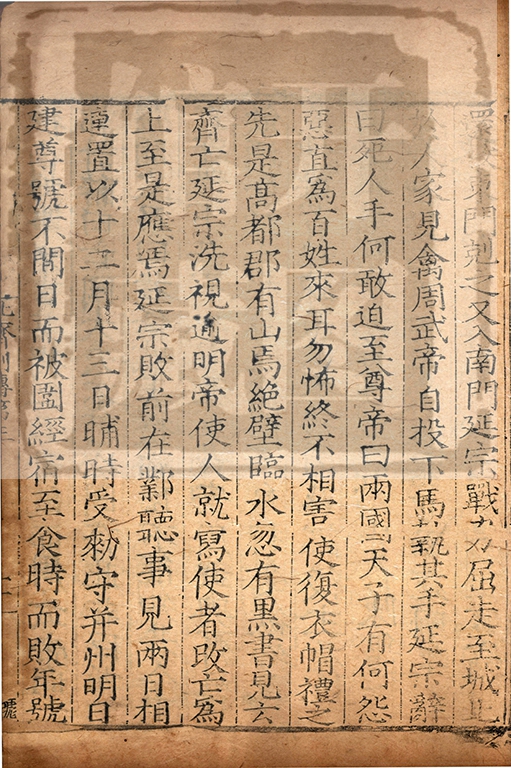 東門剋之又入南門延宗戰力屈走至城北
於人家見禽周武帝自投下馬執其手延宗辭
曰死人手何敢迫至尊帝曰兩國天子有何怨
惡直爲百姓來耳勿怖終不相害使復衣帽禮之
先是高都郡有山焉絶壁臨水忽有黒書見云
齊亡延宗洗視逾明帝使人就寫使者改亡爲
上至是應焉延宗敗前在鄴聽事見兩日相
連置以十二月十三日晡時受勑守并州明日
建尊號不間日而被圍經宿至食時而敗年號